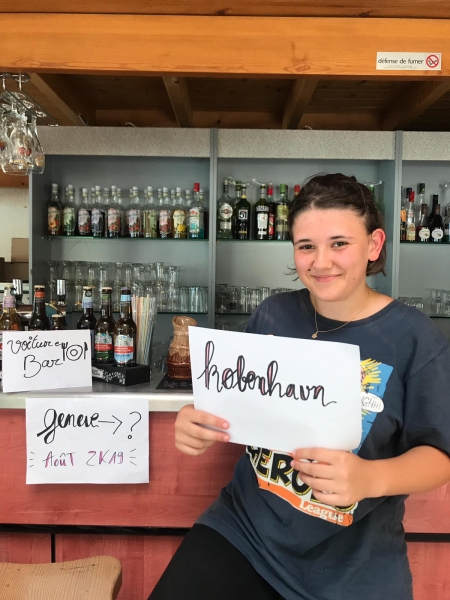 défense de fumer
Voiture
Bar
genève → ?
Août 2K19
København
HEROES
League